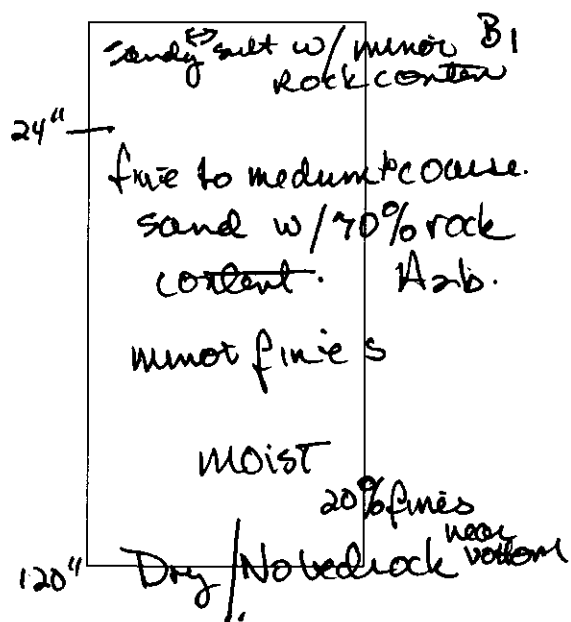 Sandy ↔ silt w/ minor B1
Rock content
24"
fine to medium to coarse
sand w/ 70% rock
content. A2b.
minor fines
MOIST
20% fines
near
bottom
120" Dry/No bedrock